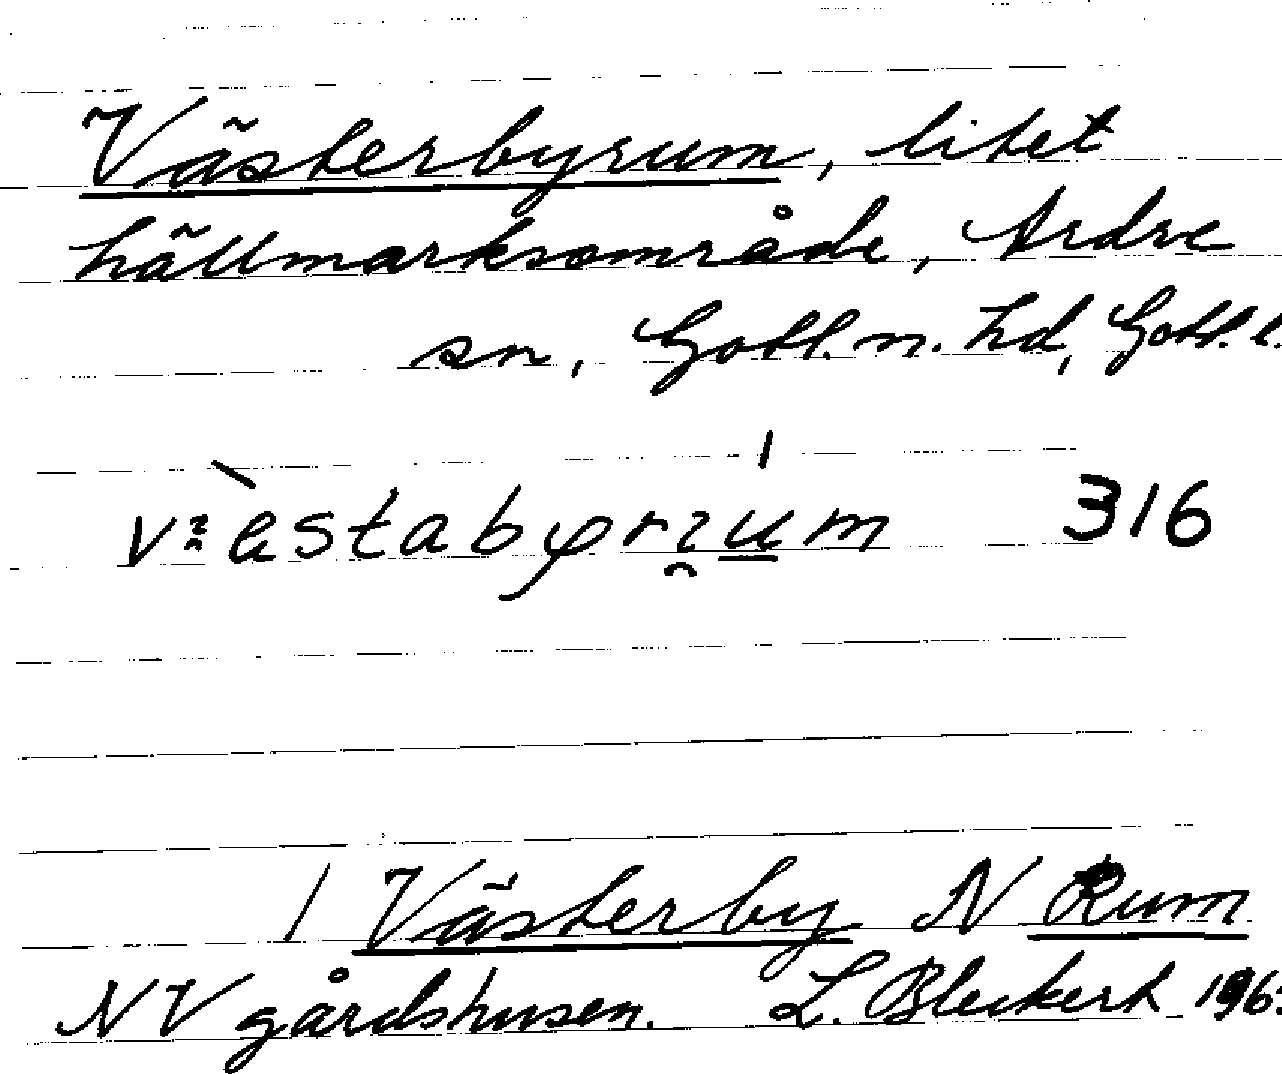 Västerbyrum, litet
hällmarksområde, Ardre
sn, Gotl. n. hd, Gotl. l.
316
/ Västerby N Rum
NV gårdshusen. L. Bleckert